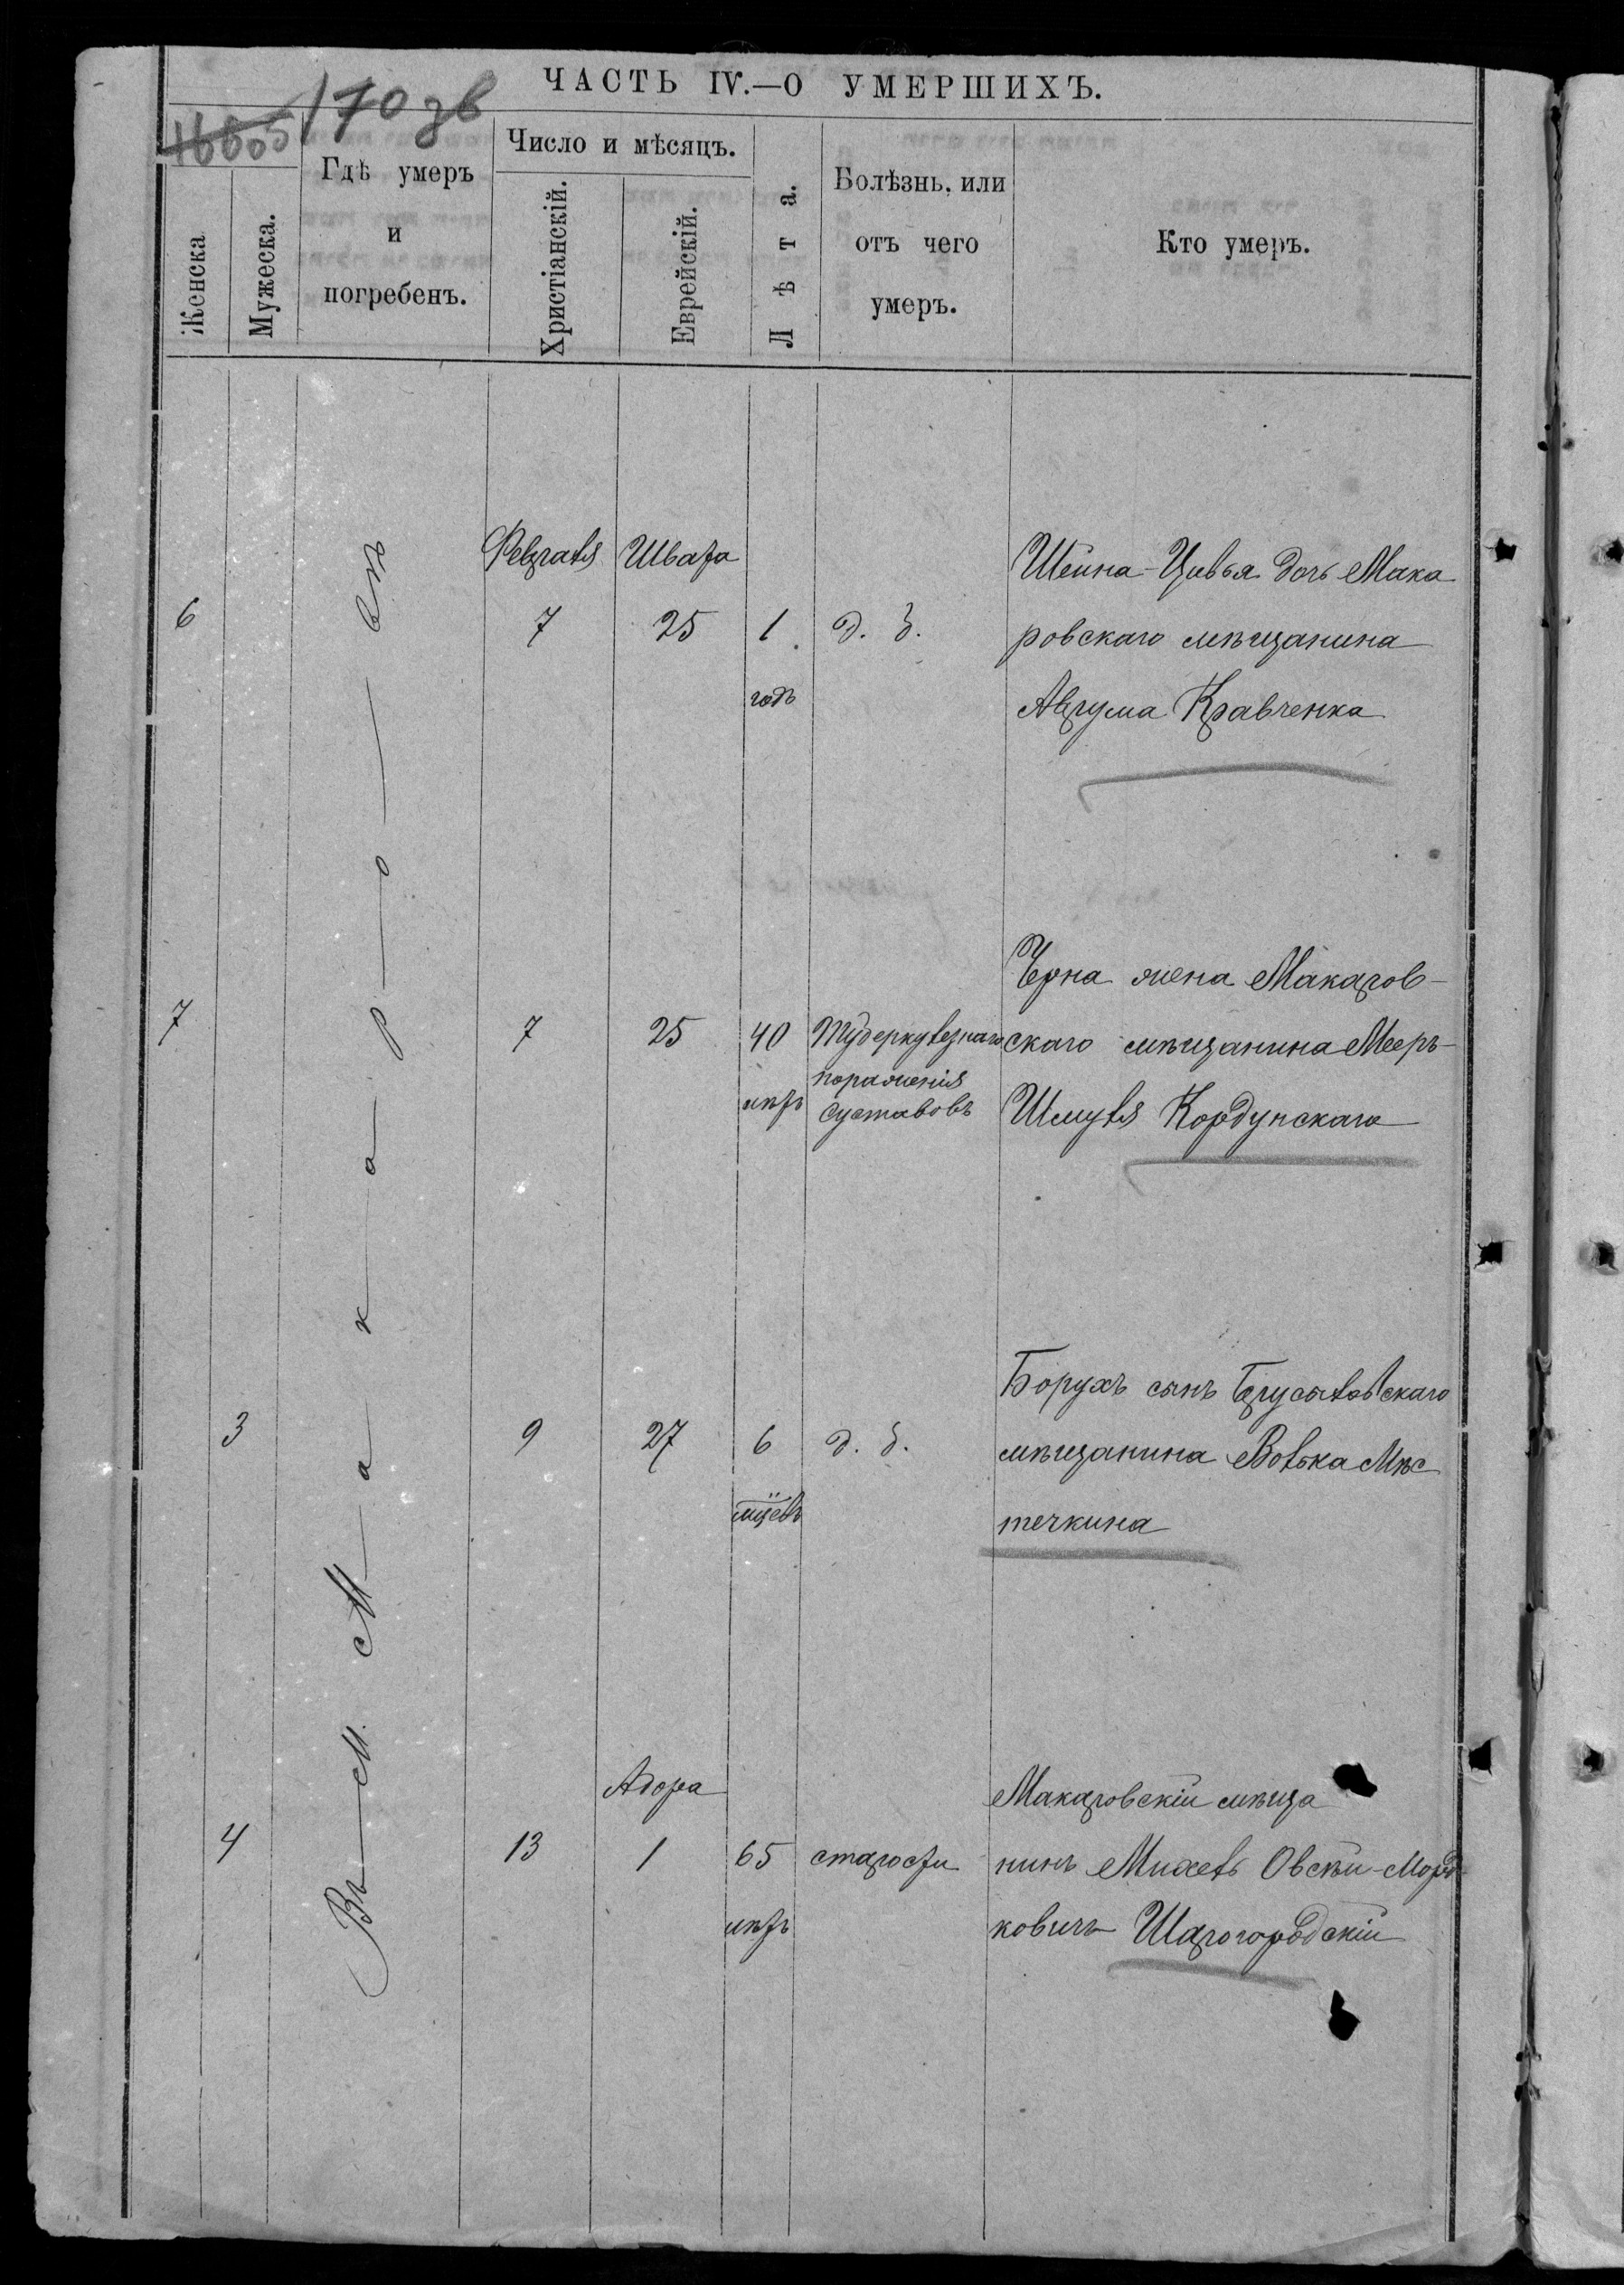 ЧАСТЬ IV.—О УМЕРШИХЪ.
170 зв
Женска
Мужеска.
Гдѣ умеръ
и
погребенъ.
Число и мѣсяцъ.
Христіанскій.
Еврейскій.
Лѣта.
Болѣзнь, или
отъ чего
умеръ.
Кто умеръ.
Въ м. Макаровѣ
Февраля Швата
6 7 25 1 д. б.
годъ
Шейна-Цивья дочь Мака
ровскаго мѣщанина
Аврума Кравченка
7 7 25 40 Туберкулезнаго
лѣтъ пораженія
суставовъ
Черна жена Макаров-
скаго мѣщанина Мееръ-
Шмуля Кордунскаго
3 9 27 6 д. б.
м̃цевъ
Борухъ сынъ Брусиловскаго
мѣщанина Волька Мѣс
течкина
Адора
4 13 1 65 старости
лѣтъ
Макаровскій мѣща
нинъ Михель Овсѣй-Морд
ковичъ Шарогородскій